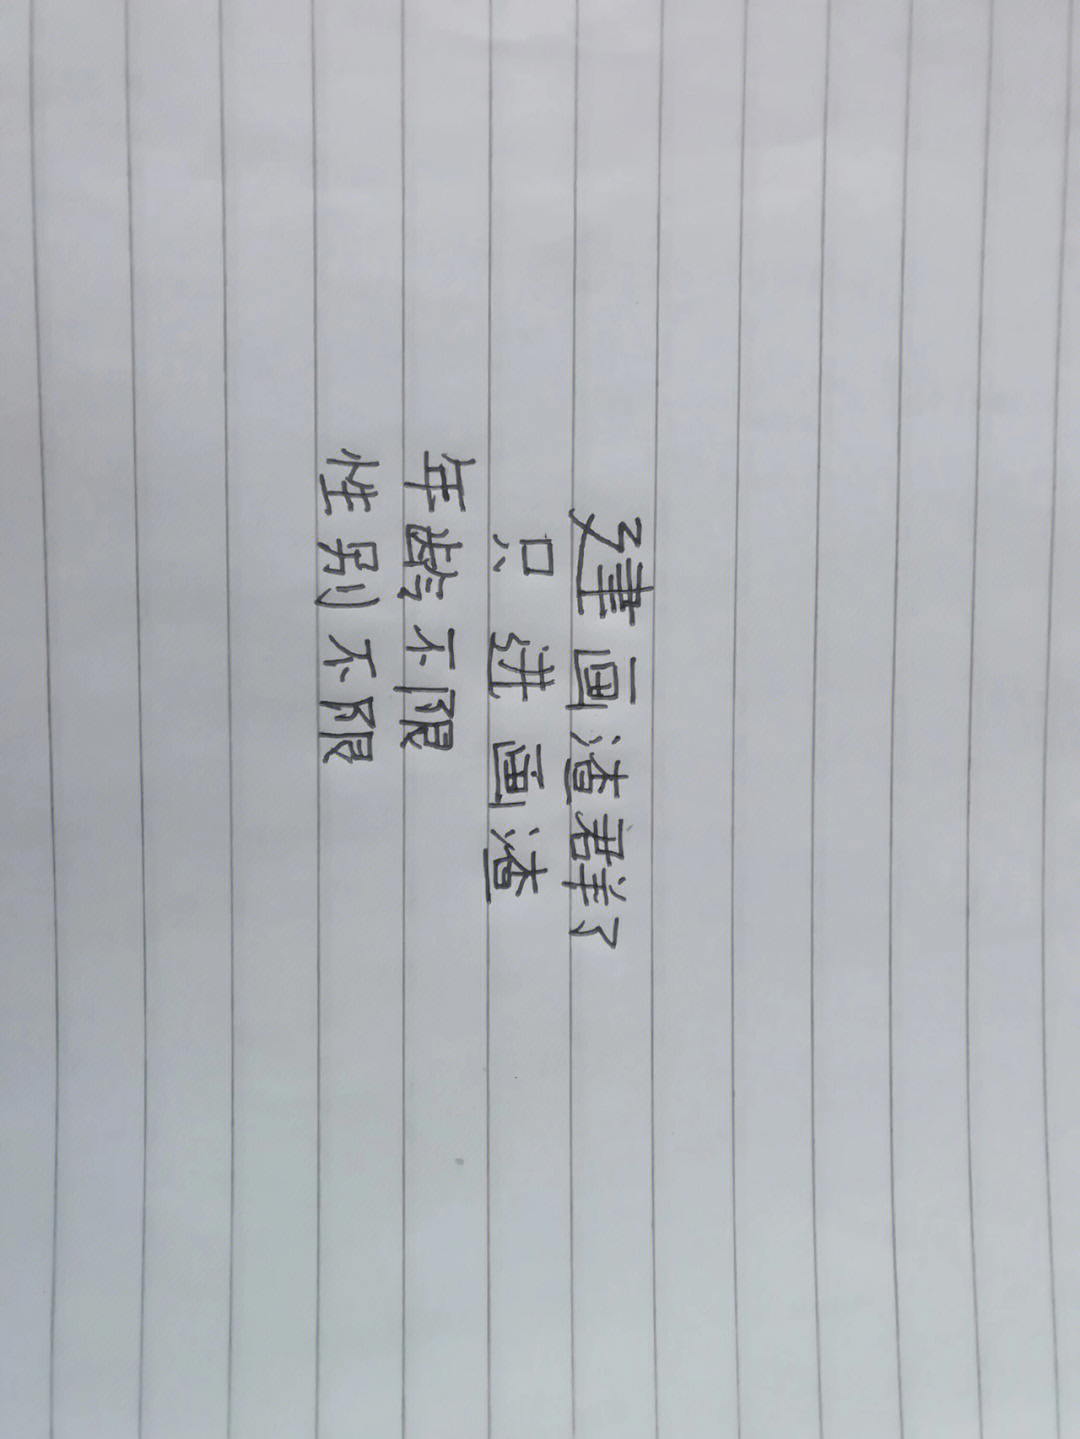 建画渣群了
只进画渣
年龄不限
性别不限